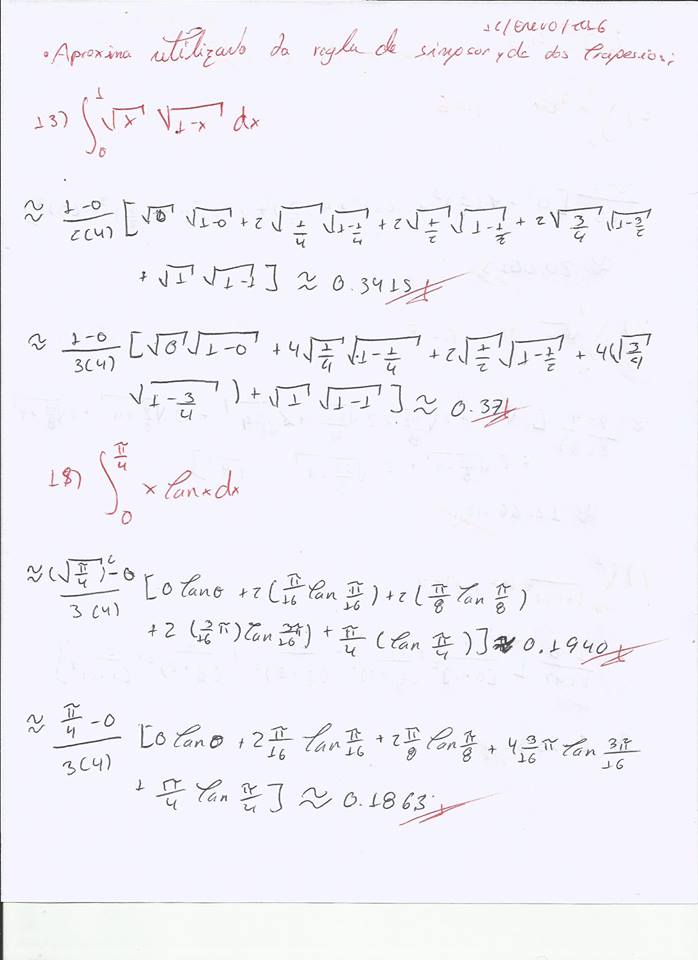 12/Enero/2016
• Aproxima utilizado da regla de simpson y de dos Trapesios;
13) ∫₀¹ √x √(1-x) dx
≈ (1-0)/(2(4)) [√0 √(1-0) + 2√(1/4) √(1-1/4) + 2√(1/2) √(1-1/2) + 2√(3/4) √(1-3/2)
+ √1 √(1-1)] ≈ 0.3415
≈ (1-0)/(3(4)) [√0 √(1-0) + 4√(1/4) √(1-1/4) + 2√(1/2) √(1-1/2) + 4(√(3/4)
√(1-3/4)) + √1 √(1-1)] ≈ 0.371
18) ∫₀^(π/4) x tan x dx
≈ ((√(π/4))² - 0)/(3(4)) [0 tan 0 + 2(π/16 tan π/16) + 2(π/8 tan π/8)
+ 2(3/16 π) tan 3π/16) + π/4 (tan π/4)] ≈ 0.1940
≈ (π/4 - 0)/(3(4)) [0 tan 0 + 2 π/16 tan π/16 + 2 π/8 tan π/8 + 4 3/16 π tan 3π/16
+ π/4 tan π/4] ≈ 0.1863